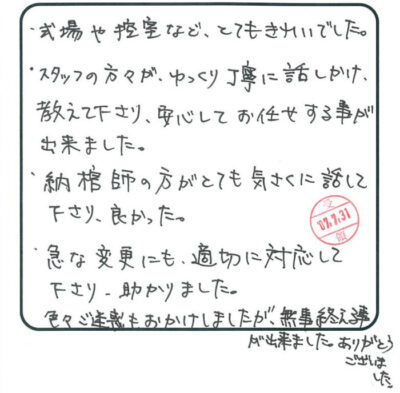 ・式場や控室など、とてもきれいでした。
・スタッフの方々が、ゆっくり丁寧に話しかけ、
教えて下さり、安心してお任せする事が
出来ました。
・納棺師の方がとても気さくに話して
下さり、良かった。
受
'07.7.31
・急な変更にも、適切に対応して
下さり、助かりました。
色々ご迷惑もおかけしましたが、無事終える事
が出来ました。ありがとう
ございま
した。